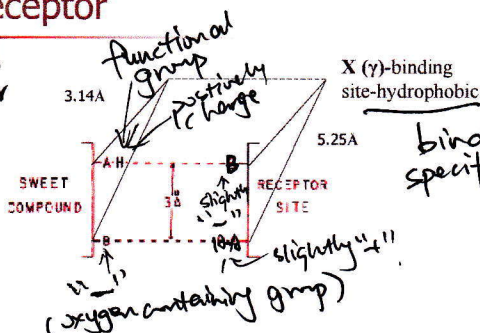 receptor
functional
group
3.14A
postively
charge
X (γ)-binding
site-hydrophobic
5.25A
A-H
B
SWEET
COMPOUND
3Å
slightly
"-"
RECEPTOR
SITE
B
H-A
slightly "+"
"-"
(oxygen containing group)